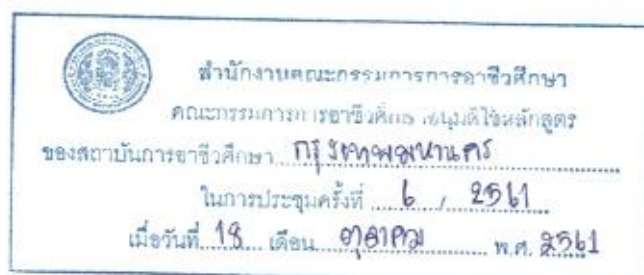 สำนักงานคณะกรรมการการอาชีวศึกษา
คณะกรรมการการอาชีวศึกษา อนุมัติใช้หลักสูตร
ของสถาบันการอาชีวศึกษา กรุงเทพมหานคร
ในการประชุมครั้งที่ 6 / 2561
เมื่อวันที่ 18 เดือน ตุลาคม พ.ศ. 2561